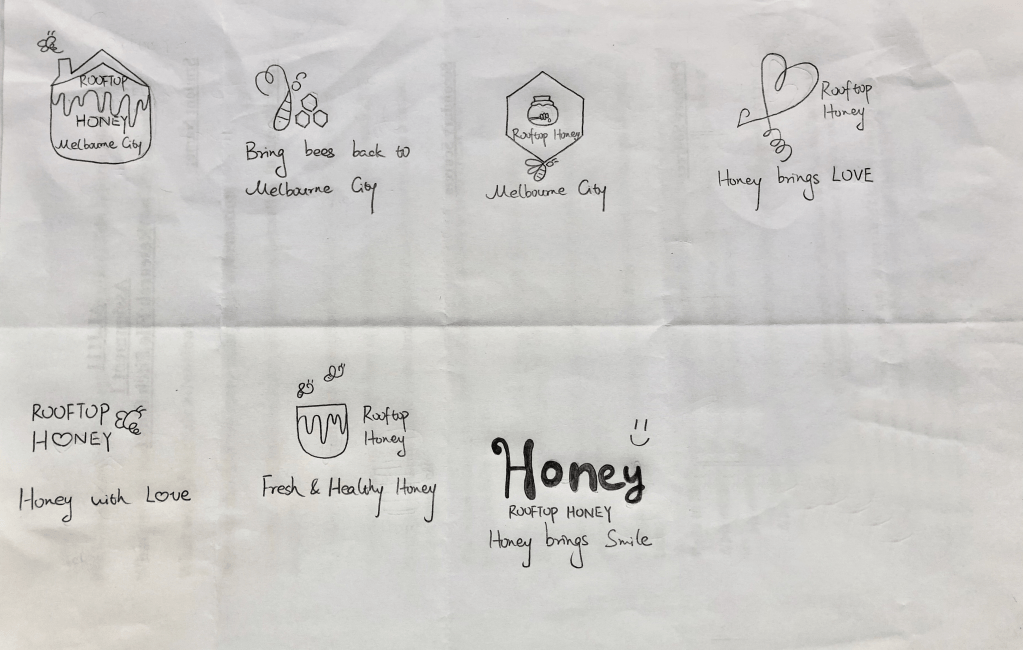 ROOFTOP
HONEY
Melbourne City
Bring bees back to
Melbourne City
Rooftop Honey
Melbourne City
Rooftop
Honey
Honey brings LOVE
ROOFTOP
HONEY
Honey with Love
Rooftop
Honey
Fresh & Healthy Honey
Honey
ROOFTOP HONEY
Honey brings Smile